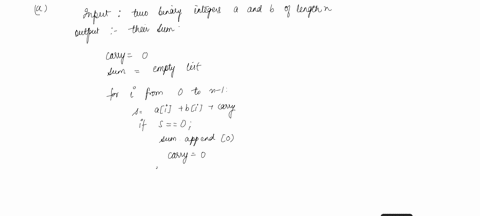 (a) Input : two binary integers a and b of length n
output :- their sum.
carry = 0
sum = empty list
for i from 0 to n-1:
s = a[i] + b[i] + carry
if s == 0;
sum append (0)
carry = 0